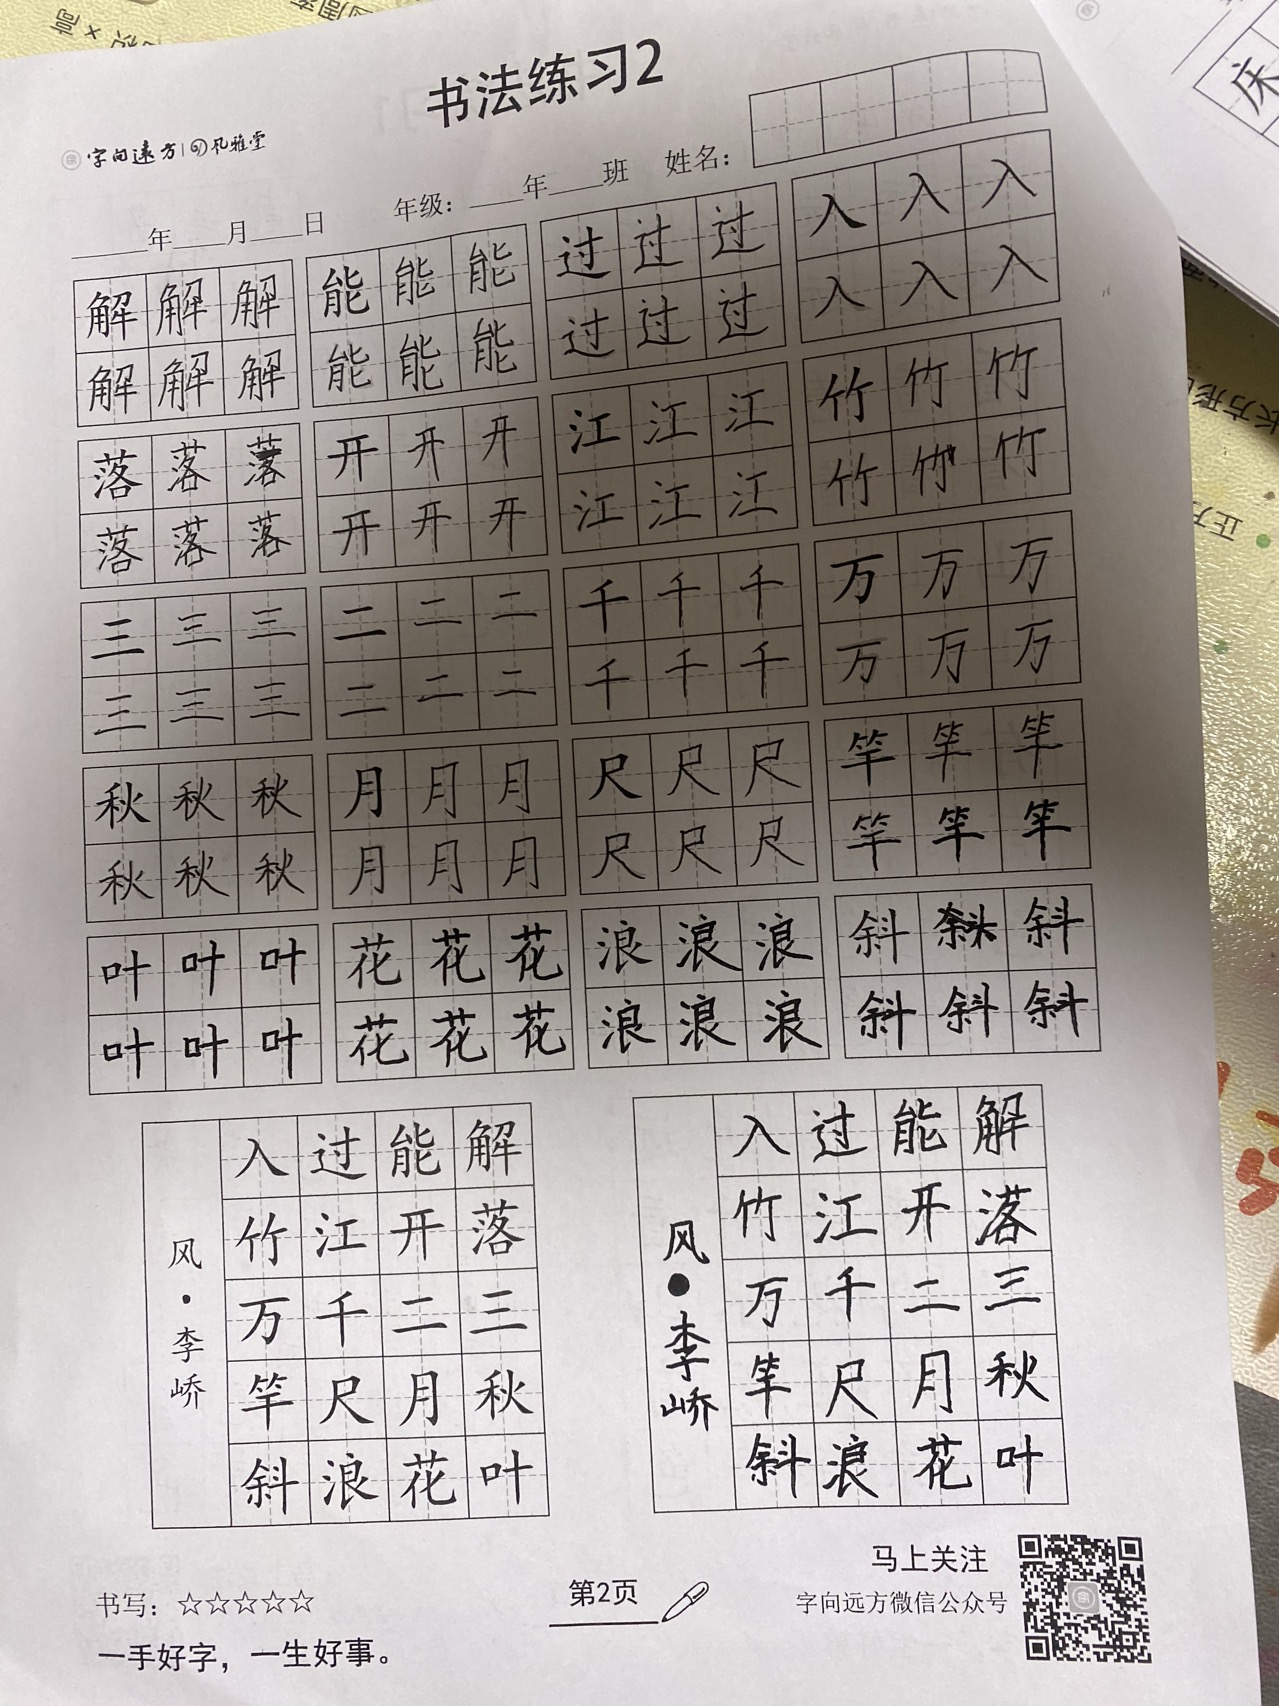 书法练习2
字向远方 风雅堂
年 月 日 年级： 年 班 姓名：
解 解 解 能 能 能 过 过 过 入 入 入
解 解 解 能 能 能 过 过 过 入 入 入
落 落 落 开 开 开 江 江 江 竹 竹 竹
落 落 落 开 开 开 江 江 江 竹 竹 竹
三 三 三 二 二 二 千 千 千 万 万 万
三 三 三 二 二 二 千 千 千 万 万 万
秋 秋 秋 月 月 月 尺 尺 尺 竿 竿 竿
秋 秋 秋 月 月 月 尺 尺 尺 竿 竿 竿
叶 叶 叶 花 花 花 浪 浪 浪 斜 斜
叶 叶 叶 花 花 花 浪 浪 浪 斜 斜 斜
风·李峤
解落三秋叶
能开二月花
过江千尺浪
入竹万竿斜
风·李峤
解落三秋叶
能开二月花
过江千尺浪
入竹万竿斜
书写：☆☆☆☆☆
一手好字，一生好事。
第2页
马上关注
字向远方微信公众号
床
长方形
正方